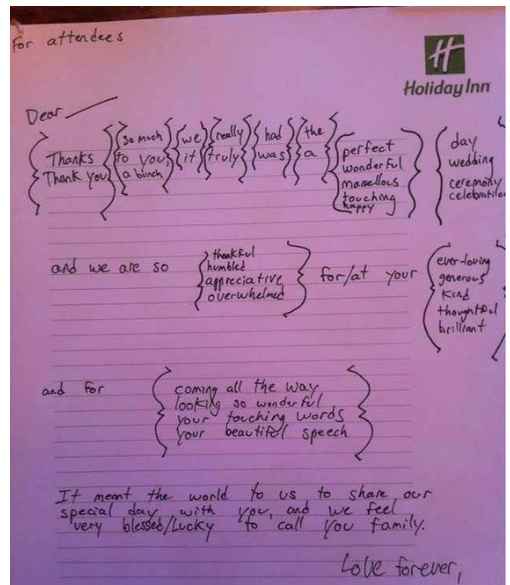 For attendees
Holiday Inn
Dear
Thanks
Thank you
so much
to you
a bunch
we
it
really
truly
had
was
the
a
perfect
wonderful
marvellous
touching
happy
day
wedding
ceremony
celebration
and we are so
thankful
humbled
appreciative
overwhelmed
for/at your
ever-loving
generous
kind
thoughtful
brilliant
and for
coming all the way
looking so wonderful
your touching words
your beautiful speech
It meant the world to us to share our
special day with you, and we feel
very blessed/lucky to call you family.
Love forever,